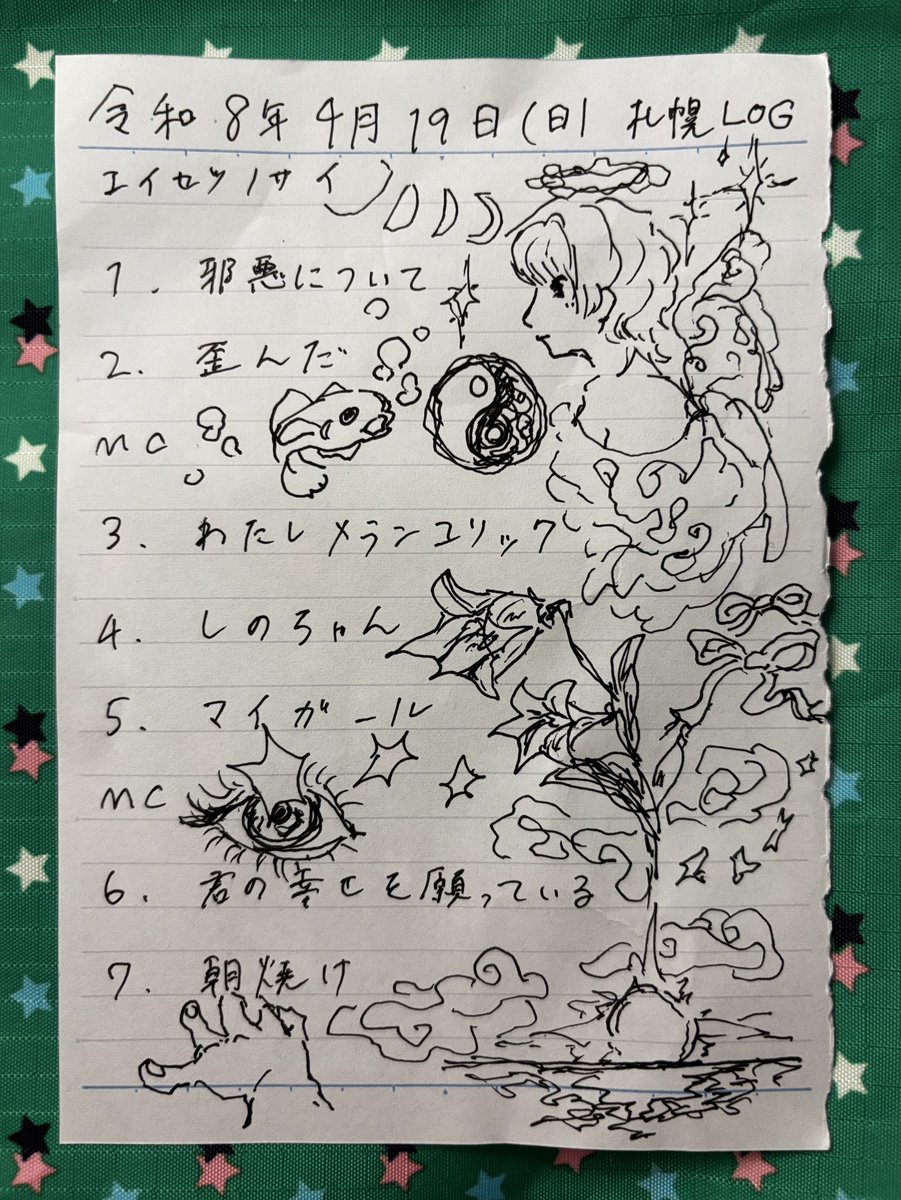 令和8年4月19日(日) 札幌LOG
エイセツノサイ
1. 邪悪について
2. 歪んだ
MC
3. わたしメランコリック
4. しのちゃん
5. マイガール
MC
6. 君の幸せを願っている
7. 朝焼け